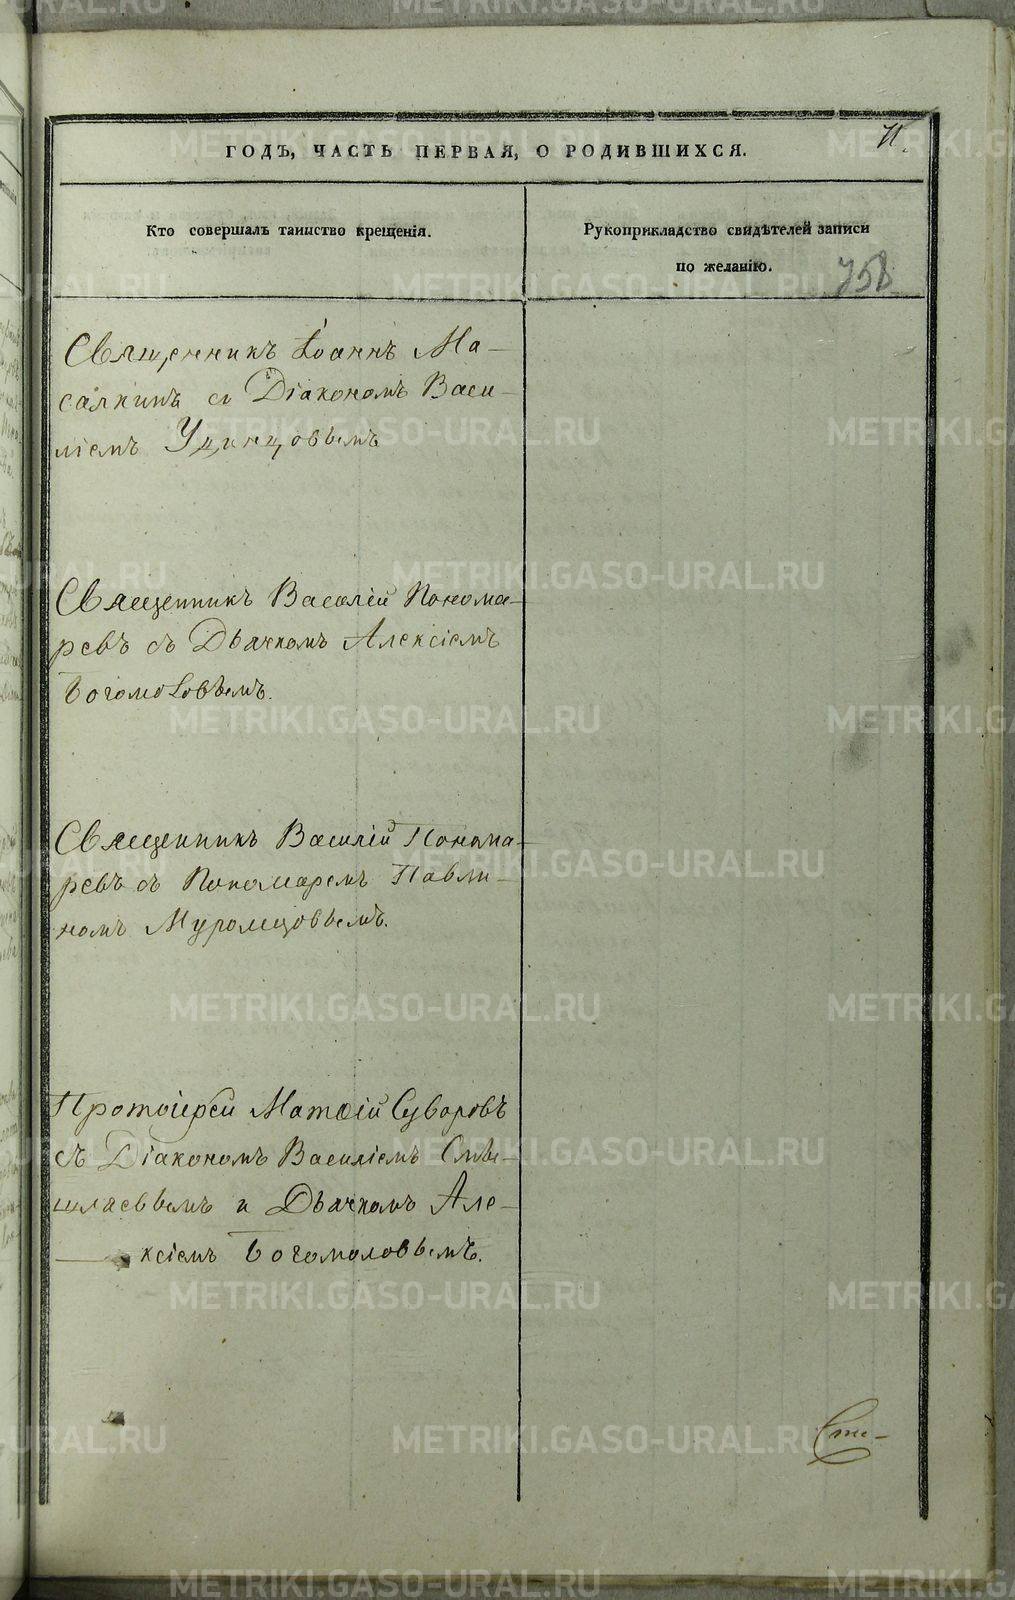 71.
ГОДЪ, ЧАСТЬ ПЕРВАЯ, О РОДИВШИХСЯ.
Кто совершалъ таинство крещенія.
Рукоприкладство свидѣтелей записи
по желанію.
758
Священникъ Іоаннъ Ма-
салкинъ съ Діакономъ Васи-
ліемъ Удинцовымъ
Священникъ Василій Понома-
ревъ съ Дьячкомъ Алексіемъ
Богомоловымъ.
Священникъ Василій Понома-
ревъ съ Пономаремъ Павли-
номъ Муромцовымъ.
Протоіерей Матѳій Суворовъ
съ Діакономъ Василіемъ Смы-
шляевымъ и Дьячкомъ Але-
ксіемъ Богомоловымъ.
METRIKI.GASO-URAL.RU